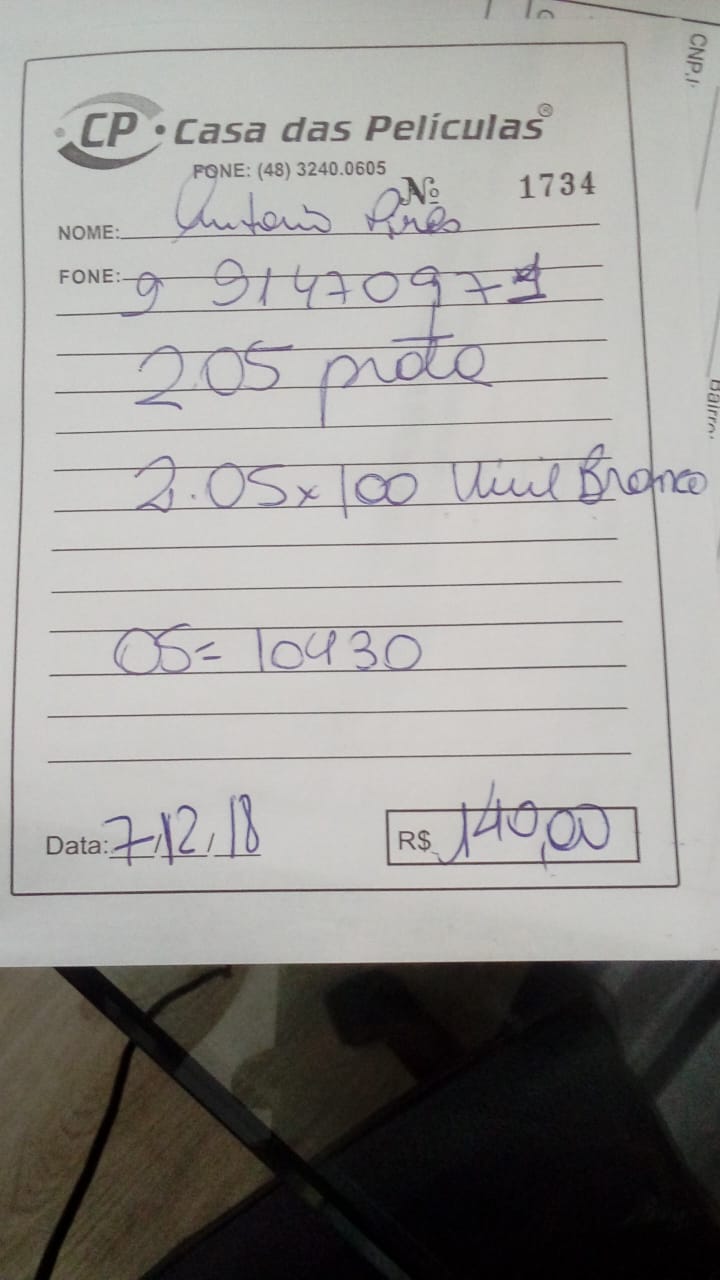 CNPJ
CP • Casa das Películas®
FONE: (48) 3240.0605
Nº 1734
NOME: Antonio Pires
FONE: 9 91470971
205 prata
2.05x100 Vinil Branco
OS= 10430
Data: 7/12/18 R$ 140,00
Bairro: